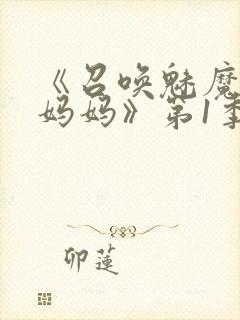 《召唤魅魔
妈妈》第1季
卯莲